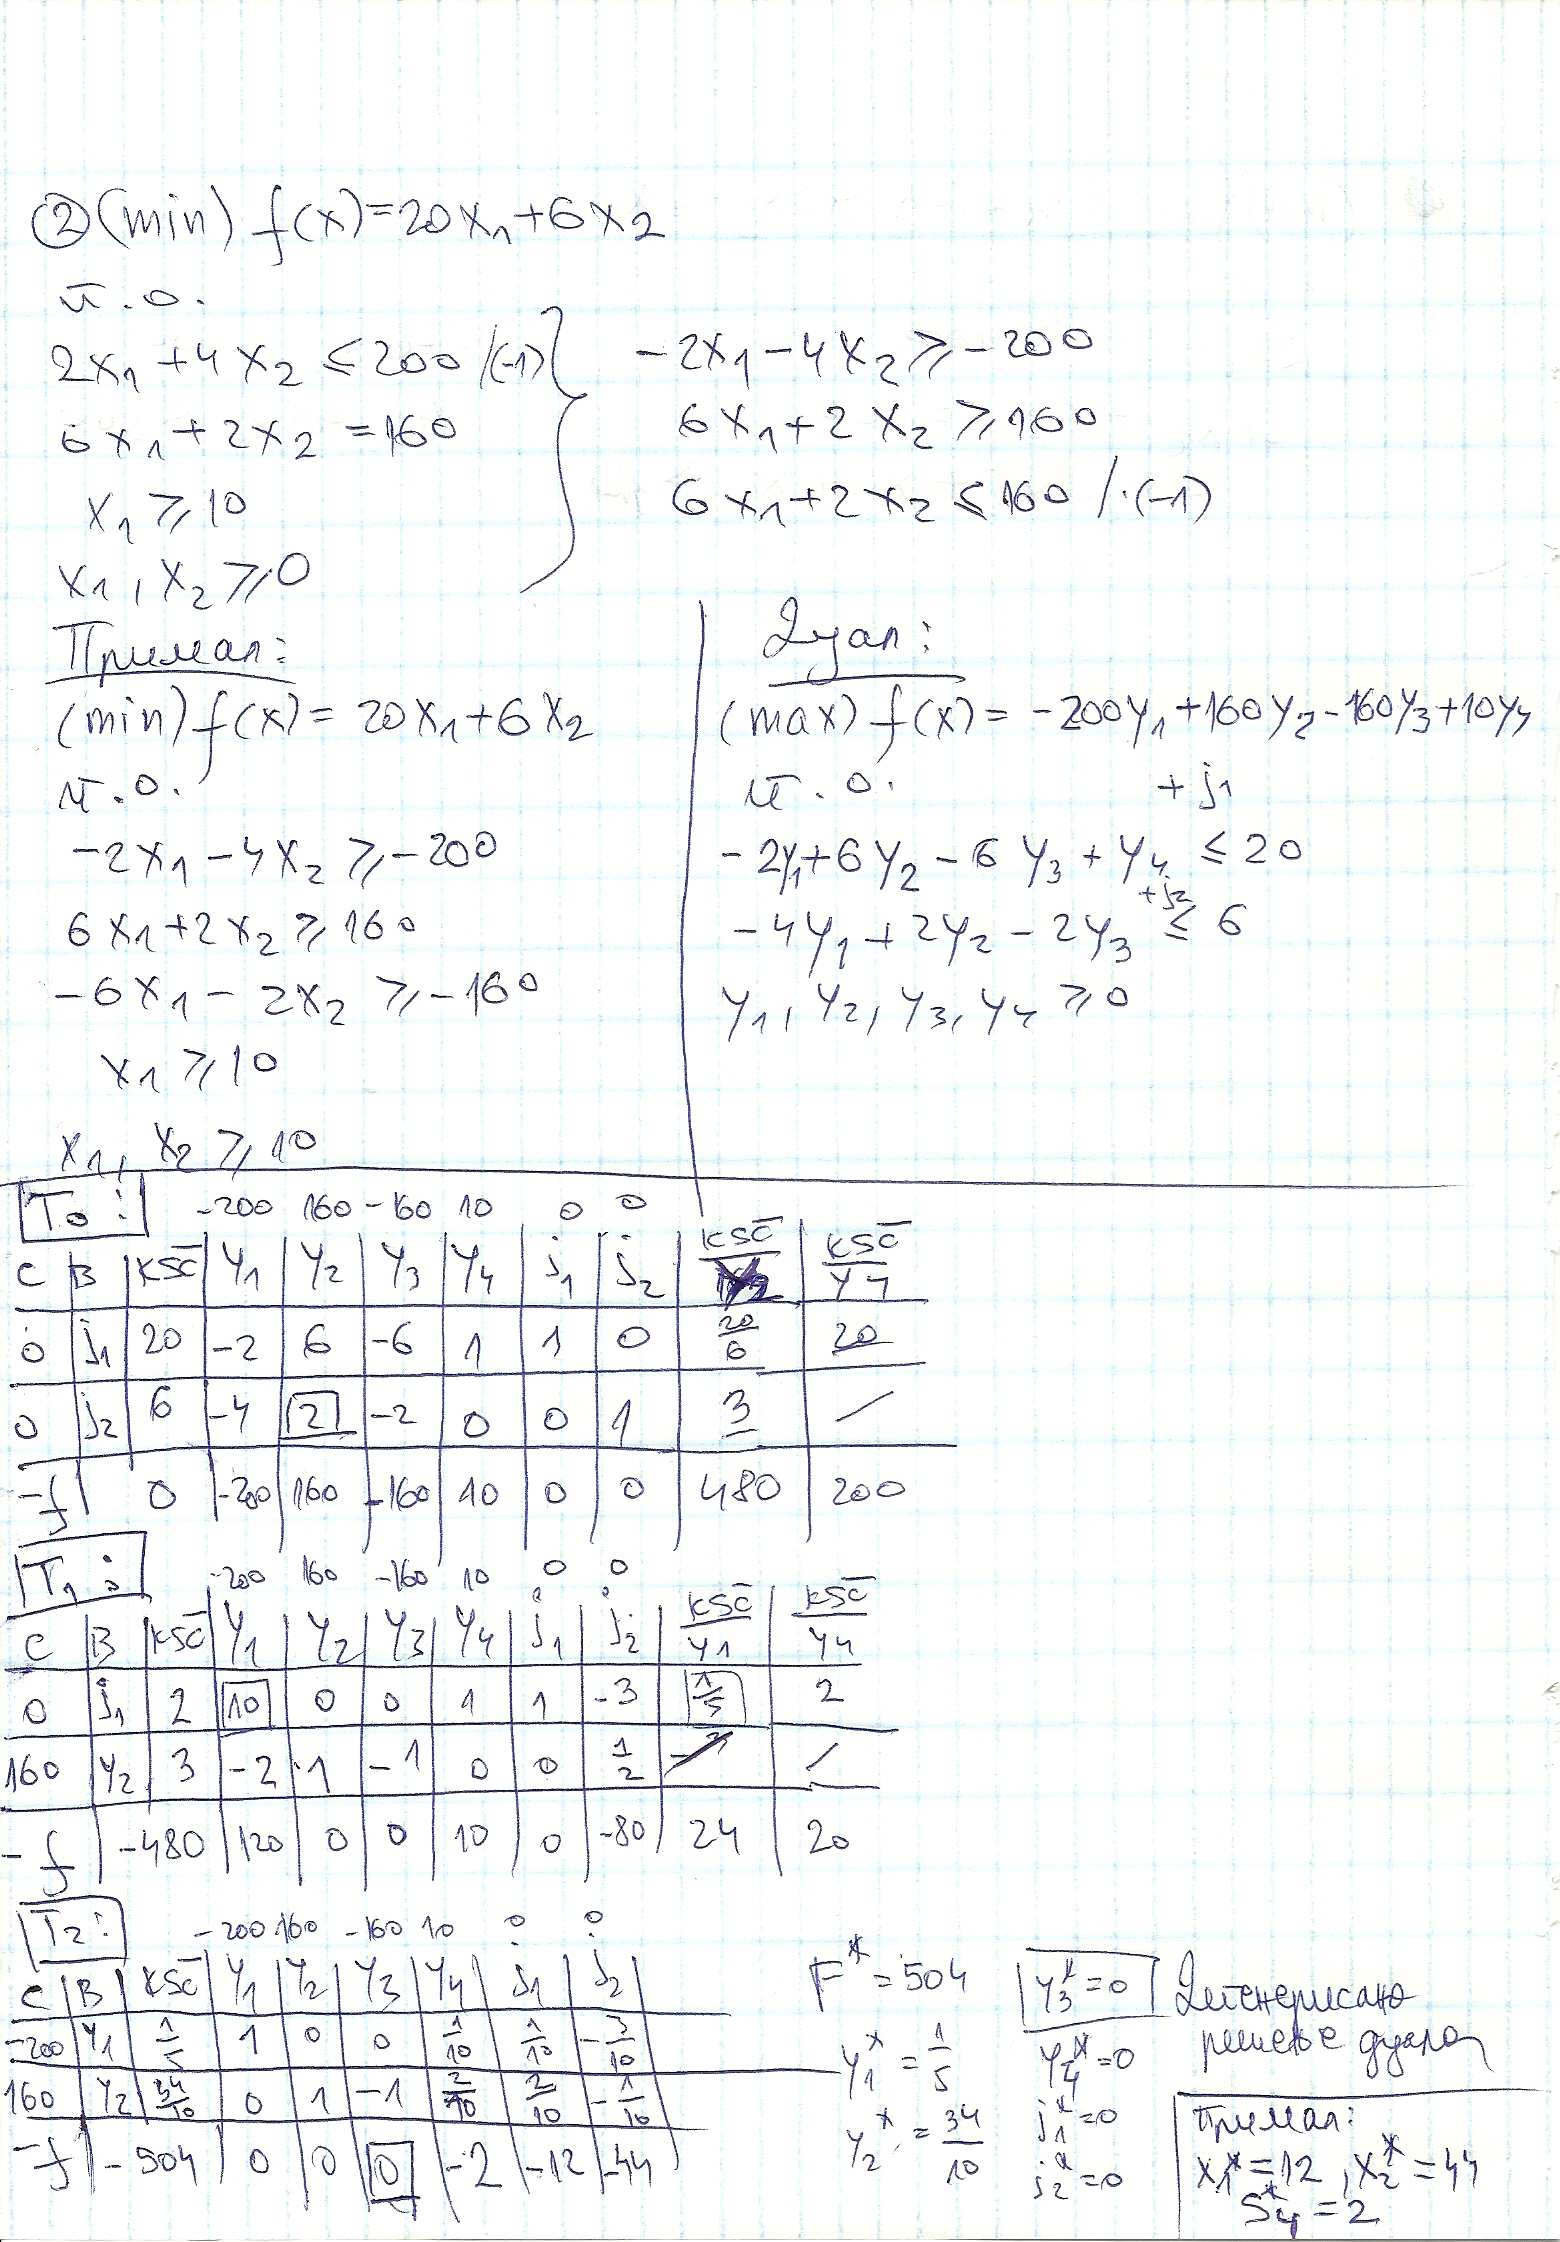 ② (min) f(x)=20x₁+6x₂
п̄.о.
2x₁+4x₂ ≤ 200 /(-1)
6x₁+2x₂ =160
x₁ ≥ 10
x₁, x₂ ≥ 0
-2x₁-4x₂ ≥ -200
6x₁+2x₂ ≥ 160
6x₁+2x₂ ≤ 160 /·(-1)
Примал:
(min) f(x)= 20x₁+6x₂
п̄.о.
-2x₁-4x₂ ≥ -200
6x₁+2x₂ ≥ 160
-6x₁-2x₂ ≥ -160
x₁ ≥ 10
x₁, x₂ ≥ 10
Дуал:
(max) f(x)= -200y₁+160y₂-160y₃+10y₄
п̄.о. +j₁
-2y₁+6y₂-6y₃+y₄ ≤ 20
+j₂
-4y₁+2y₂-2y₃ ≤ 6
y₁, y₂, y₃, y₄ ≥ 0
T₀: -200 160 -160 10 0 0
C B KSC̄ y₁ y₂ y₃ y₄ j₁ j₂ KSC̄ KSC̄/y₄
0 j₁ 20 -2 6 -6 1 1 0 20/6 20
0 j₂ 6 -4 2 -2 0 0 1 3 /
-f 0 -200 160 -160 10 0 0 480 200
T₁: -200 160 -160 10 0 0
C B KSC̄ y₁ y₂ y₃ y₄ j₁ j₂ KSC̄/y₁ KSC̄/y₄
0 j₁ 2 10 0 0 1 1 -3 1/5 2
160 y₂ 3 -2 1 -1 0 0 1/2 /
-f -480 120 0 0 10 0 -80 24 20
T₂: -200 160 -160 10 0 0
C B KSC̄ y₁ y₂ y₃ y₄ j₁ j₂
-200 y₁ 1/5 1 0 0 1/10 1/10 -3/10
160 y₂ 34/10 0 1 -1 2/10 2/10 -1/10
-f -504 0 0 0 -2 -12 -44
F*=504
y₁*=1/5
y₂*=34/10
y₃*=0
y₄*=0
j₁*=0
j₂*=0
Дегенерисано
решење дуала
Примал:
x₁*=12, x₂*=44
S₄*=2